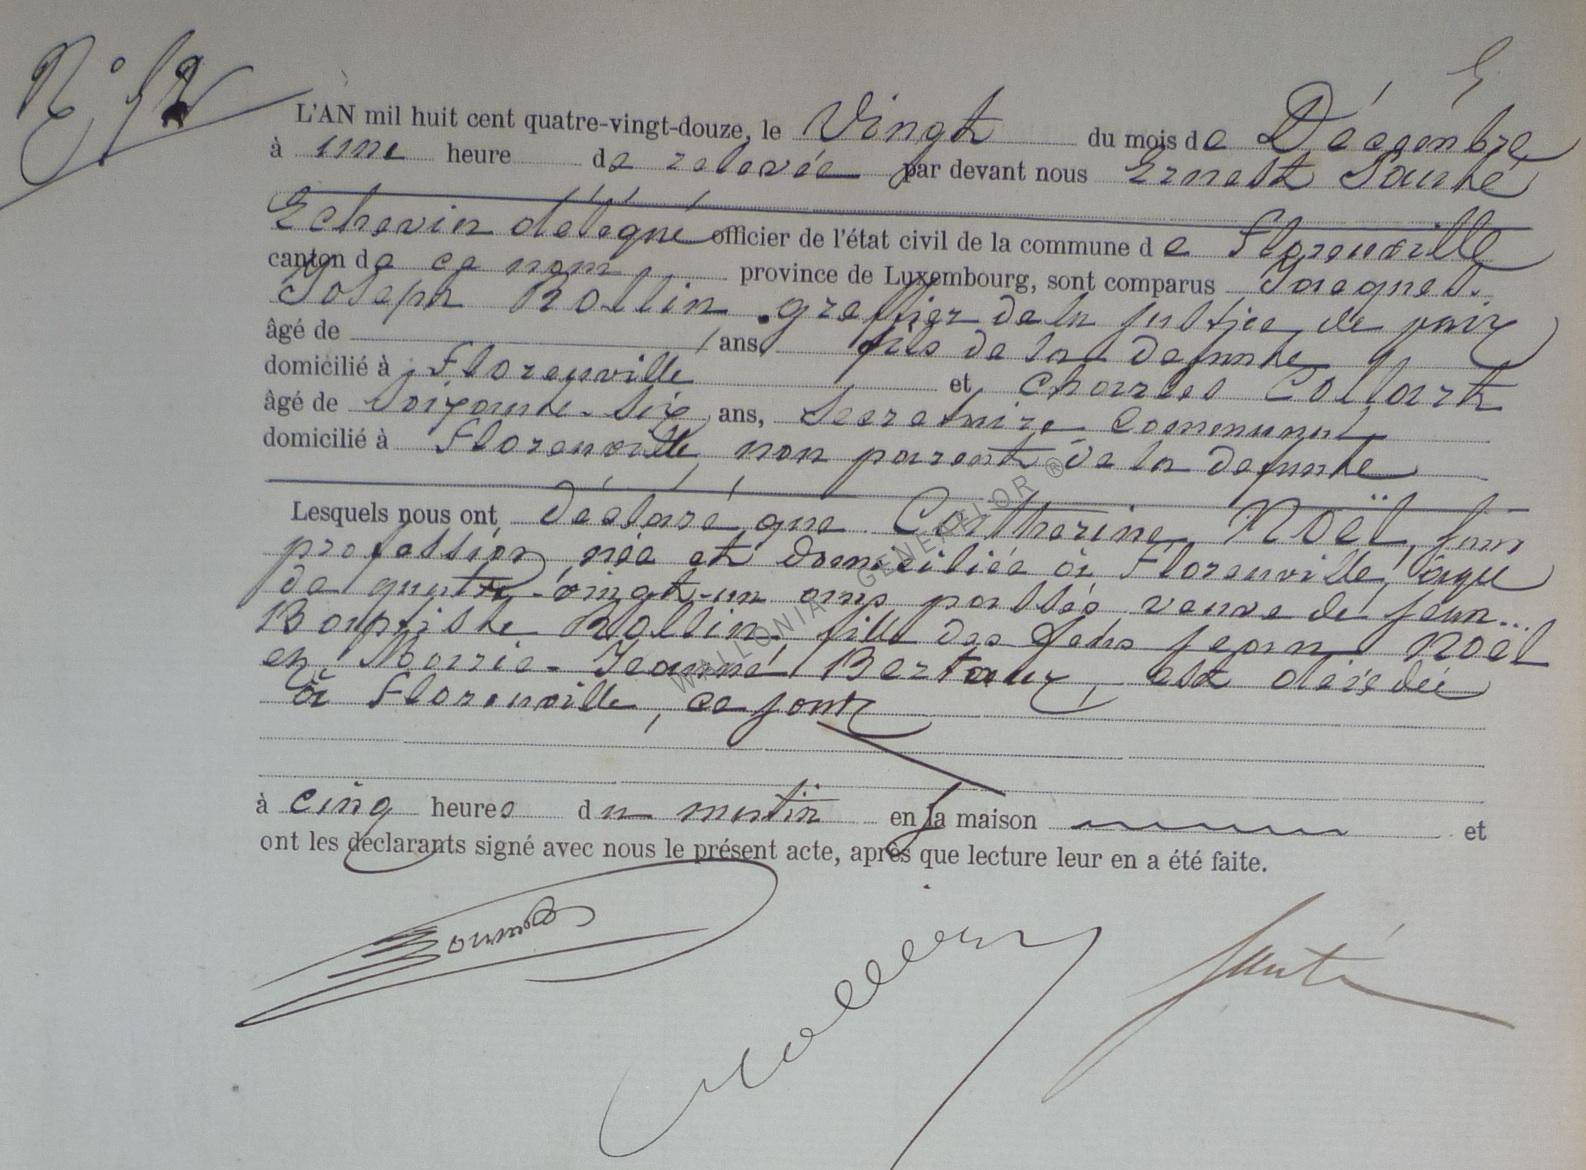 N° 52
L'AN mil huit cent quatre-vingt-douze, le Vingt du mois de Décembre
à une heure de relevée par devant nous Ernest Santé
Echevin délégué officier de l'état civil de la commune de Florenville
canton de ce nom, province de Luxembourg, sont comparus Jacques.
Joseph Rollin greffier de la justice de paix
âgé de ans, fils de la defunte
domicilié à Florenville et Charles Collart
âgé de Soixante-six ans, Secretaire Communal
domicilié à Florenville, non parent de la defunte
Lesquels nous ont déclaré que Catherine Noël, sans
profession, née et domiciliée à Florenville, âgée
de quatre-vingt-un ans passés veuve de Jean...
Baptiste Rollin, fille des feus Jean Noël
et Marie-Jeanne Bertaux, est décédée
à Florenville, ce jour
à cinq heures du matin en sa maison et
ont les déclarants signé avec nous le présent acte, après que lecture leur en a été faite.
Rollin
Santé
WALLONIA GENEALOR ®